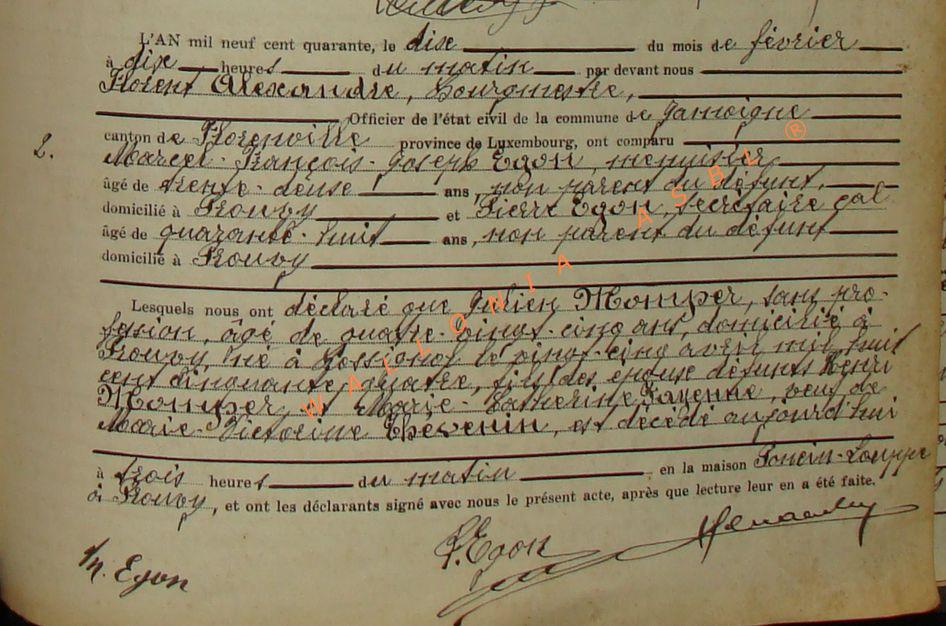 L'AN mil neuf cent quarante, le dix du mois de février
à dix heures du matin par devant nous
Florent Alexandre, Bourgmestre,
Officier de l'état civil de la commune de Jamoigne
canton de Florenville province de Luxembourg, ont comparu
2. Marcel-François-Joseph Egon, menuisier
âgé de trente-deux ans, non parent du défunt,
domicilié à Prouvy et Pierre Egon, secrétaire cal
âgé de quarante-huit ans, non parent du défunt
domicilié à Prouvy
Lesquels nous ont déclaré que Julien Momper, sans pro-
fession, âgé de quatre-vingt-cinq ans, domicilié à
Prouvy, né à Rossignol le vingt-cinq avril mil huit
cent cinquante quatre, fils des époux défunts Henri
Momper et Marie-Catherine Fayenne, veuf de
Marie-Victorine Thévenin, est décédé aujourd'hui
à trois heures du matin en la maison Poncin-Louppe
à Prouvy, et ont les déclarants signé avec nous le présent acte, après que lecture leur en a été faite.
P. Egon
M. Egon
WALLONIA ASBL ®